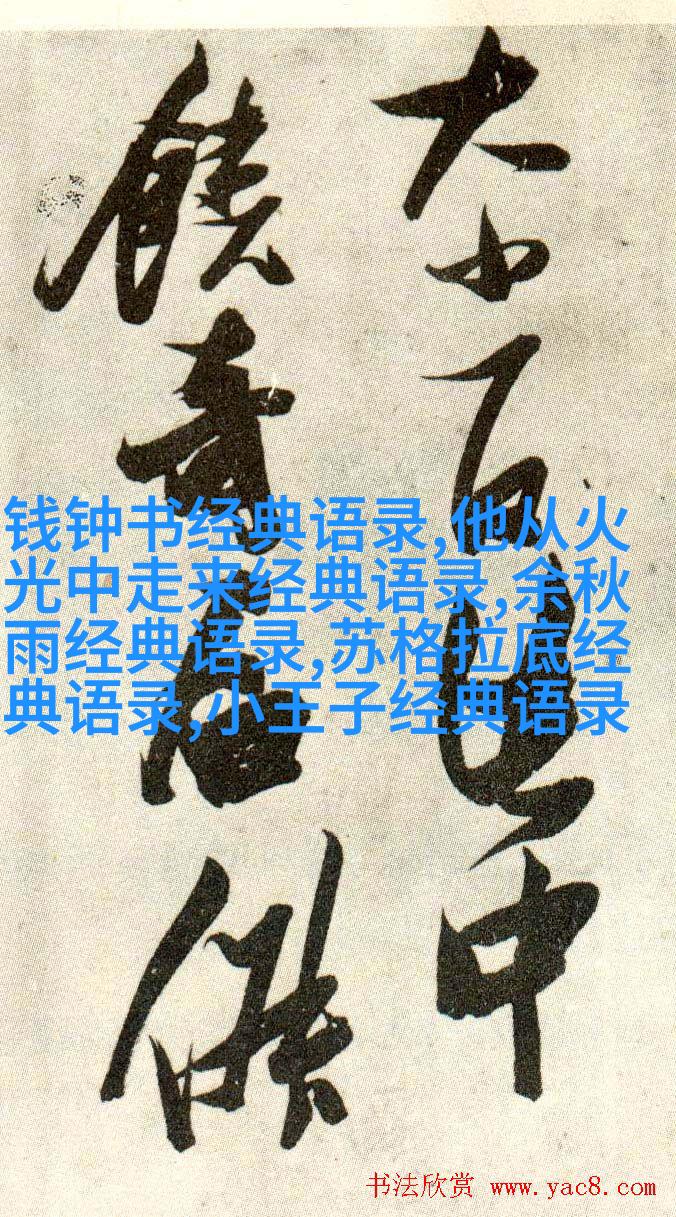 大小百中
饒奇
钱钟书经典语录,他从火
光中走来经典语录,余秋
雨经典语录,苏格拉底经
典语录,小王子经典语录
书法欣赏 www.yac8.com